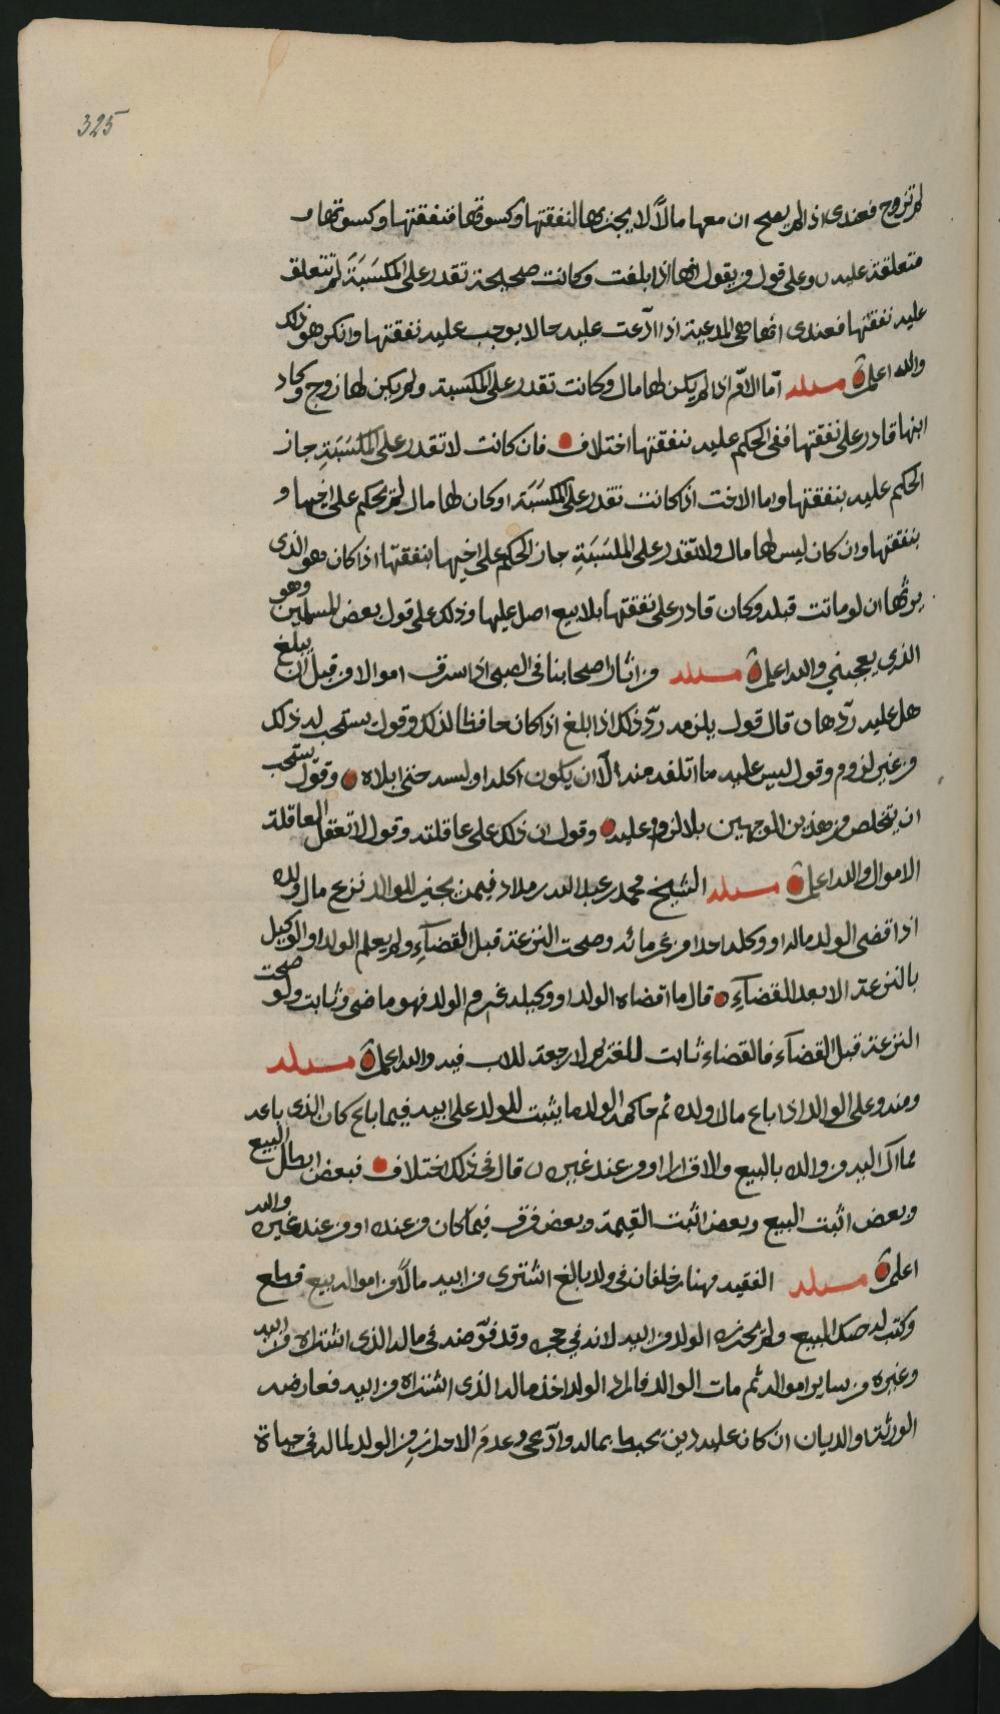 325
لم تزوج فعندي اذا لم يصح ان معها مالًا لا يجزيها لنفقتها وكسوتها فنفقتها وكسوتها
متعلقة عليه وعلى قول من يقول انها اذا بلغت وكانت صحيحة تقدر على المكسَبَة لم تتعلق
عليه نفقتها فعندي انها هي المدعية اذا ادّعت عليه حالا يوجب عليه نفقتها وانكر هو ذلك
والله اعلم مسئلة امّا الامّ اذا لم يكن لها مال وكانت تقدر على المكسبة ولم يكن لها زوج وكان
ابنها قادر على نفقتها ففي الحكم عليه بنفقتها اختلاف فان كانت لا تقدر على المكسَبَةِ جاز
الحكم عليه بنفقتها واما الاخت اذا كانت تقدر على المكسَبَة او كان لها مال لم يحكم على اخيها
بنفقتها وان كان ليس لها مال ولا تقدر على المكسَبَةِ جاز الحكم على اخيها بنفقتها اذا كان هو الذى
يرثها ان لو ماتت قبله وكان قادر على نفقتها بلا بيع اصل عليها وذلك على قول بعض المسلمين وهو
الذي يعجبني والله اعلم مسئلة من اثار اصحابنا في الصبي اذا سرق اموالا من قبل ان يبلغ
هل عليه ردّها قال قول يلزمه ردّ ذلك اذا بلغ اذا كان حافظا لذلك وقول يستحب له ذلك
من غير لزوم وقول ليس عليه ما اتلفه منه الّا ان يكون اكله او لبسه حتى ابلاه وقول يستحب
ان يتخلص من هذين الوجهين بلا لزوم عليه وقول ان ذلك على عاقلته وقول لا تعقل العاقلة
الاموال والله اعلم مسئلة الشيخ محمد بن عبد الله بن مداد فيمن يجيز للوالد نزع مال ولده
اذا قضى الولد ماله او وكله احدا من غرمائه وصحت النزعة قبل القضآءِ ولم يعلم الولد او الوكيل
بالنزعة الا بعد القضآءِ قال ما اقضاه الولد او وكيله غريم الولد فهو ماضى وثابت ولو صحت
النزعة قبل القضآء فالقضاء ثابت للغريم لا رجعة للاب فيه والله اعلم مسئلة
ومنه وعلى الوالد اذا باع مال ولده ثم حاكمه الولد ما يثبت للولد على ابيه فيما باع كان الذى باعه
مما آل اليه من والده بالبيع والاقرار او من عند غيره قال في ذلك اختلاف فبعض ابطل البيع
وبعض اثبت البيع وبعض اثبت القيمة وبعض فرق فيما كان من عنده او من عند غيره والله
اعلم مسئلة الفقيه مهنا بن خلفان في ولد بالغ اشترى من ابيه مالًا من امواله بيع قطع
وكتب له صك البيع ولم يحزه الولد من ابيه لانه في حجره وقد فوّضه في ماله الذى اشتراه من ابيه
وغيره من ساير امواله ثم مات الوالد فاراد الولد اخذ ماله الذى اشتراه من ابيه فعارضه
الورثة والديان ان كان عليه دين يحيط بماله وادّعى عدم الاحراز من الولد لماله في حياة